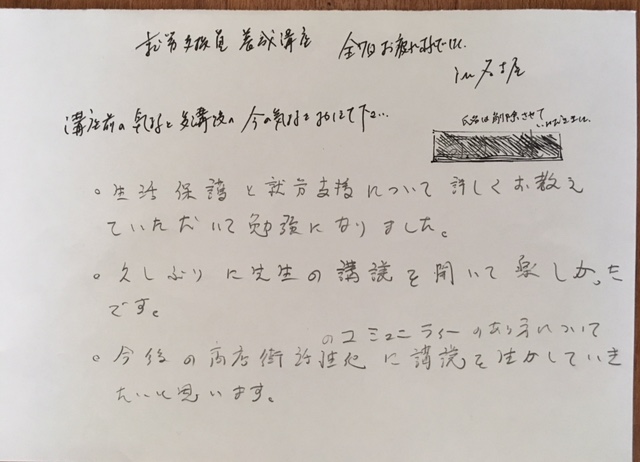 就労支援員 養成講座 全7日お疲れさまでした。
in 名古屋
講座前の気持と受講後の今の気持をおしえて下さい…
氏名は削除させて
いただきました。
◦生活保護と就労支援について詳しくお教え
ていただいて勉強になりました。
◦久しぶりに先生の講議を聞いて楽しかった
です。
のコミュニティーのあり方について
◦今後の商店街活性化に講議を生かしていき
たいと思います。